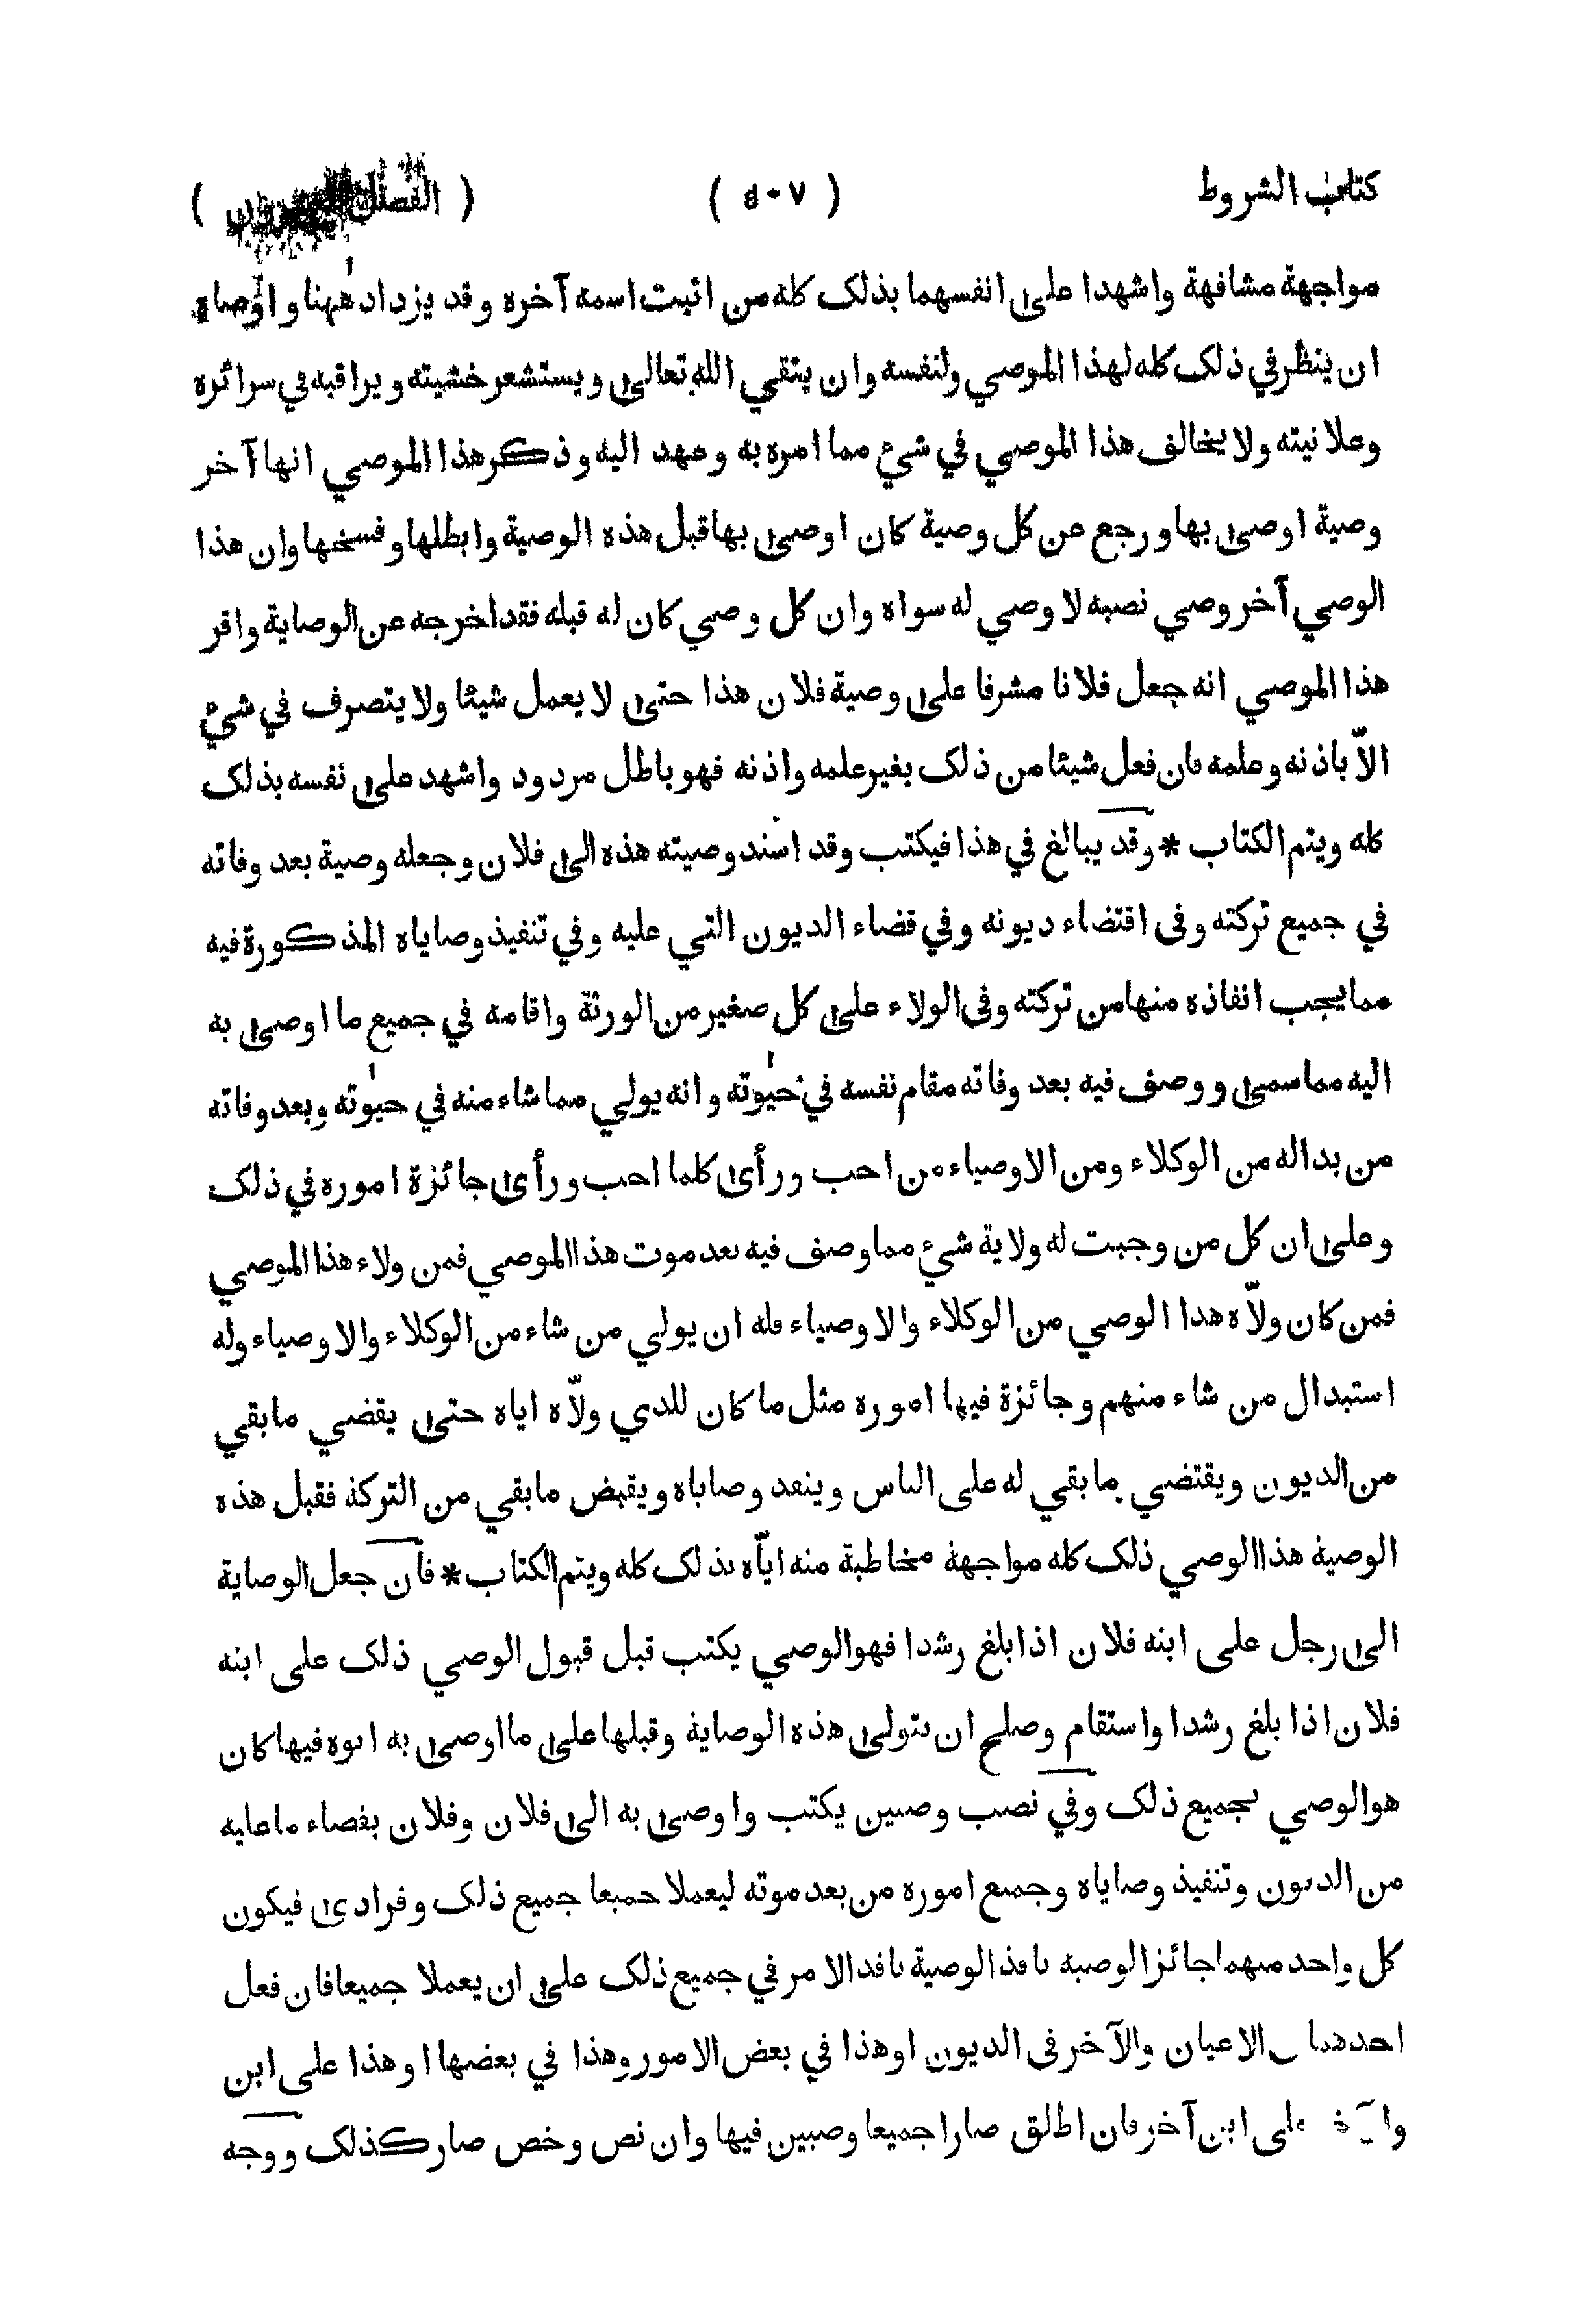 كتاب الشروط ( ٥٠٧ ) ( الفصل )
مواجهة مشافهة واشهدا على انفسهما بذلك كله من اثبت اسمه آخره وقد يزداد ههنا واوصاه
ان ينظر في ذلك كله لهذا الموصي ولنفسه وان يتقي الله تعالى ويستشعر خشيته ويراقبه في سرائره
وعلانيته ولا يخالف هذا الموصي في شيء مما امره به وعهد اليه وذكر هذا الموصي انها آخر
وصية اوصى بها ورجع عن كل وصية كان اوصى بها قبل هذه الوصية وابطلها وفسخها وان هذا
الوصي آخر وصي نصبه لا وصي له سواه وان كل وصي كان له قبله فقد اخرجه عن الوصاية واقر
هذا الموصي انه جعل فلانا مشرفا على وصية فلان هذا حتى لا يعمل شيئا ولا يتصرف في شيء
الّا باذنه وعلمه فان فعل شيئا من ذلك بغير علمه واذنه فهو باطل مردود واشهد على نفسه بذلك
كله ويتم الكتاب * وقد يبالغ في هذا فيكتب وقد اسند وصيته هذه الى فلان وجعله وصية بعد وفاته
في جميع تركته وفى اقتضاء ديونه وفي قضاء الديون التي عليه وفي تنفيذ وصاياه المذكورة فيه
مما يجب انفاذه منها من تركته وفى الولاء على كل صغير من الورثة واقامه في جميع ما اوصى به
اليه مما سمى ووصف فيه بعد وفاته مقام نفسه في حيٰوته وانه يولي مما شاء منه في حيٰوته وبعد وفاته
من بدا له من الوكلاء ومن الاوصياء من احب ورأى كلما احب ورأى جائزة اموره في ذلك
وعلى ان كل من وجبت له ولاية شيء مما وصف فيه بعد موت هذا الموصي فمن ولاء هذا الموصي
فمن كان ولّاه هذا الوصي من الوكلاء والاوصياء فله ان يولي من شاء من الوكلاء والاوصياء وله
استبدال من شاء منهم وجائزة فيها اموره مثل ما كان للذي ولّاه اياه حتى يقضي ما بقي
من الديون ويقتضي ما بقي له على الناس وينفذ وصاياه ويقبض ما بقي من التركة فقبل هذه
الوصية هذا الوصي ذلك كله مواجهة مخاطبة منه ايّاه بذلك كله ويتم الكتاب * فان جعل الوصاية
الى رجل على ابنه فلان اذا بلغ رشدا فهو الوصي يكتب قبل قبول الوصي ذلك على ابنه
فلان اذا بلغ رشدا واستقام وصلح ان يتولى هذه الوصاية وقبلها على ما اوصى به ابوه فيها كان
هو الوصي بجميع ذلك وفي نصب وصيين يكتب واوصى به الى فلان وفلان بقضاء ما عليه
من الديون وتنفيذ وصاياه وجميع اموره من بعد موته ليعملا جميعا جميع ذلك وفرادى فيكون
كل واحد منهما جائز الوصية نافذ الوصية نافذ الامر في جميع ذلك على ان يعملا جميعا فان فعل
احدهما الاعيان والآخر فى الديون او هذا في بعض الامور وهذا في بعضها او هذا على ابن
على ابن آخر فان اطلق صارا جميعا وصيين فيها وان نص وخص صار كذلك ووجه